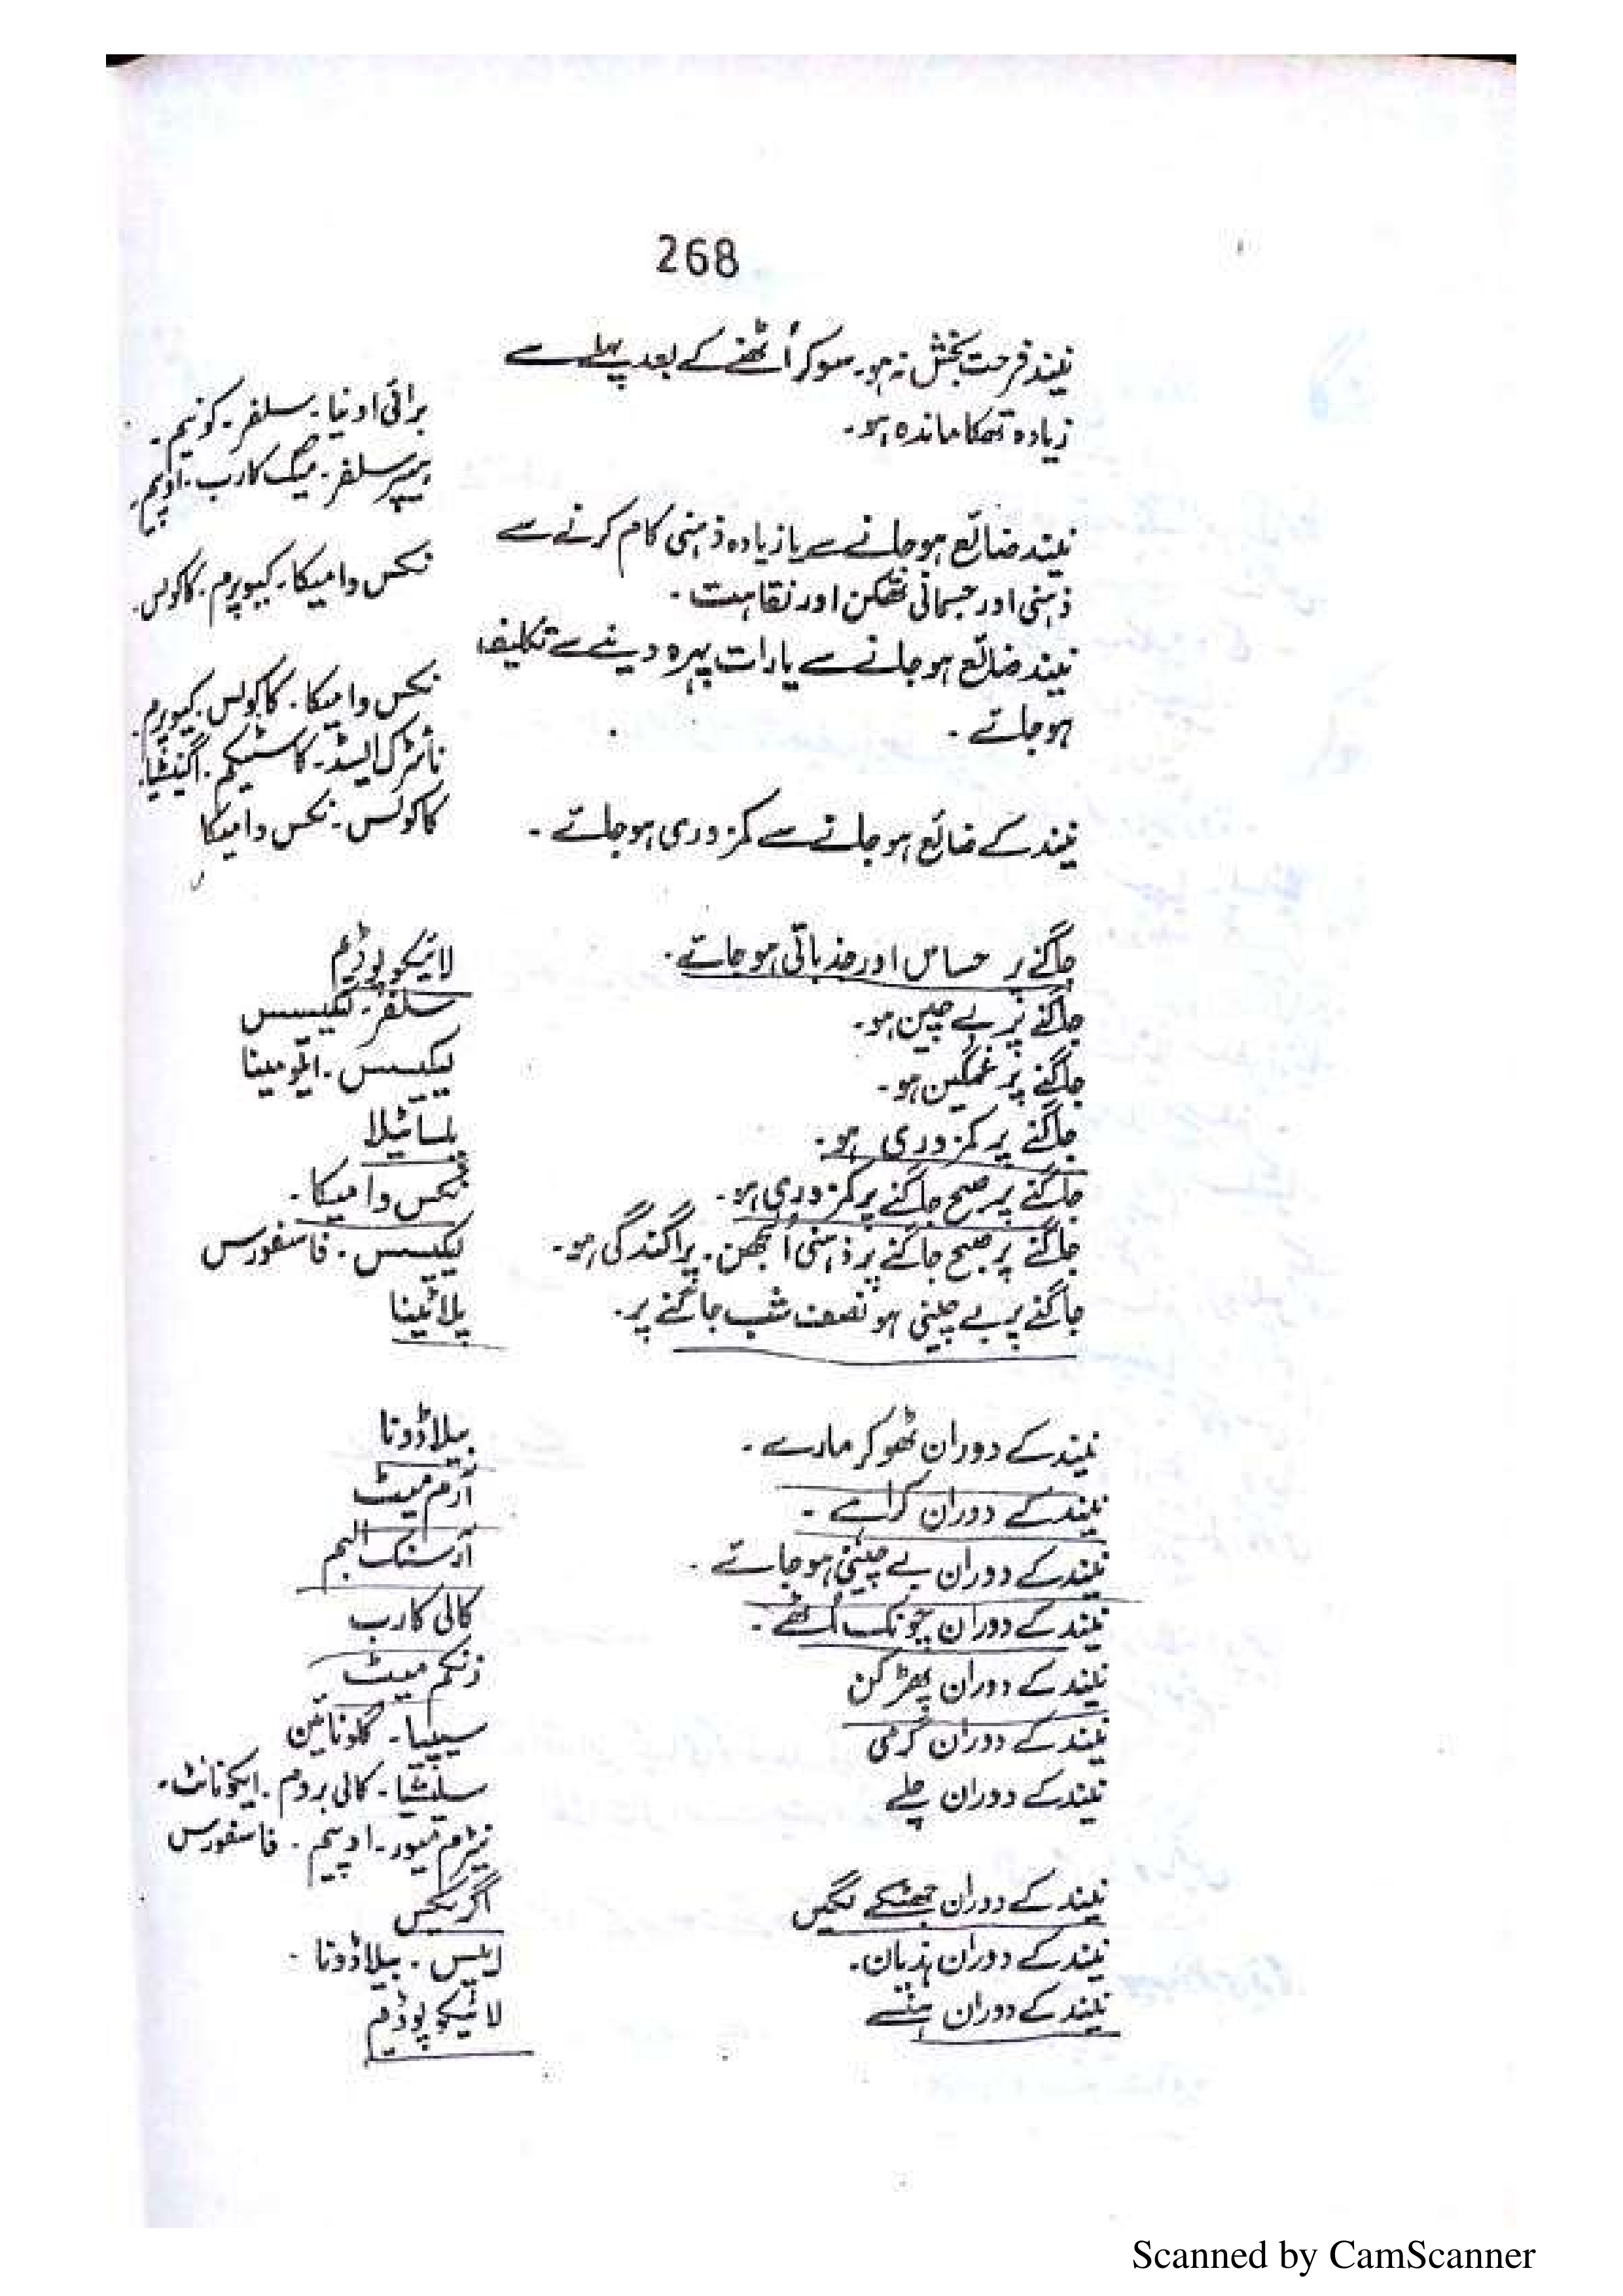 268
نیند فرحت بخش نہ ہو۔ سو کر اُٹھنے کے بعد پہلے سے
زیادہ تھکا ماندہ ہو۔
برائی اونیا۔ سلفر۔ کونیم۔
ہیپر سلفر۔ میگ کارب۔ اوپیم۔
نیند ضائع ہو جانے سے یا زیادہ ذہنی کام کرنے سے
ذہنی اور جسمانی تھکن اور نقاہت۔
نکس وامیکا۔ کیوپرم۔ کاکولس۔
نیند ضائع ہو جانے سے یا رات پہرہ دینے سے تکلیف
ہو جائے۔
نکس وامیکا۔ کاکولس۔ کیوپرم۔
نائٹرک ایسڈ۔ کاسٹیکم۔ اگنیشیا۔
نیند کے ضائع ہو جانے سے کمزوری ہو جائے۔
کاکولس۔ نکس وامیکا
جاگنے پر حساس اور جذباتی ہو جائے۔
لائیکوپوڈیم
جاگنے پر بے چین ہو۔
سلفر۔ لیکیسس
جاگنے پر غمگین ہو۔
لیکیسس۔ ایلومینا
جاگنے پر کمزوری ہو۔
پلساٹیلا
جاگنے پر صبح جاگنے پر کمزوری ہو۔
نکس وامیکا۔
جاگنے پر صبح جاگنے پر ذہنی اُلجھن۔ پراگندگی ہو۔
لیکیسس۔ فاسفورس
جاگنے پر بے چینی ہو نصف شب جاگنے پر۔
پلاٹینا
نیند کے دوران ٹھوکر مارے۔
بیلاڈونا
نیند کے دوران کراہے۔
آرم میٹ
نیند کے دوران بے چینی ہو جائے۔
آرسنک البم
نیند کے دوران چونک اُٹھے۔
کالی کارب
نیند کے دوران پھڑکن
زنکم میٹ
نیند کے دوران گرمی
سیپیا۔
نیند کے دوران چلے
سلیشیا۔ کالی بروم۔ ایکونائٹ۔
نیٹرم میور۔ اوپیم۔ فاسفورس
نیند کے دوران جھٹکے لگیں
اگریکس
نیند کے دوران ہذیان۔
ایپس۔ بیلاڈونا۔
نیند کے دوران ہنسے
لائیکوپوڈیم
Scanned by CamScanner